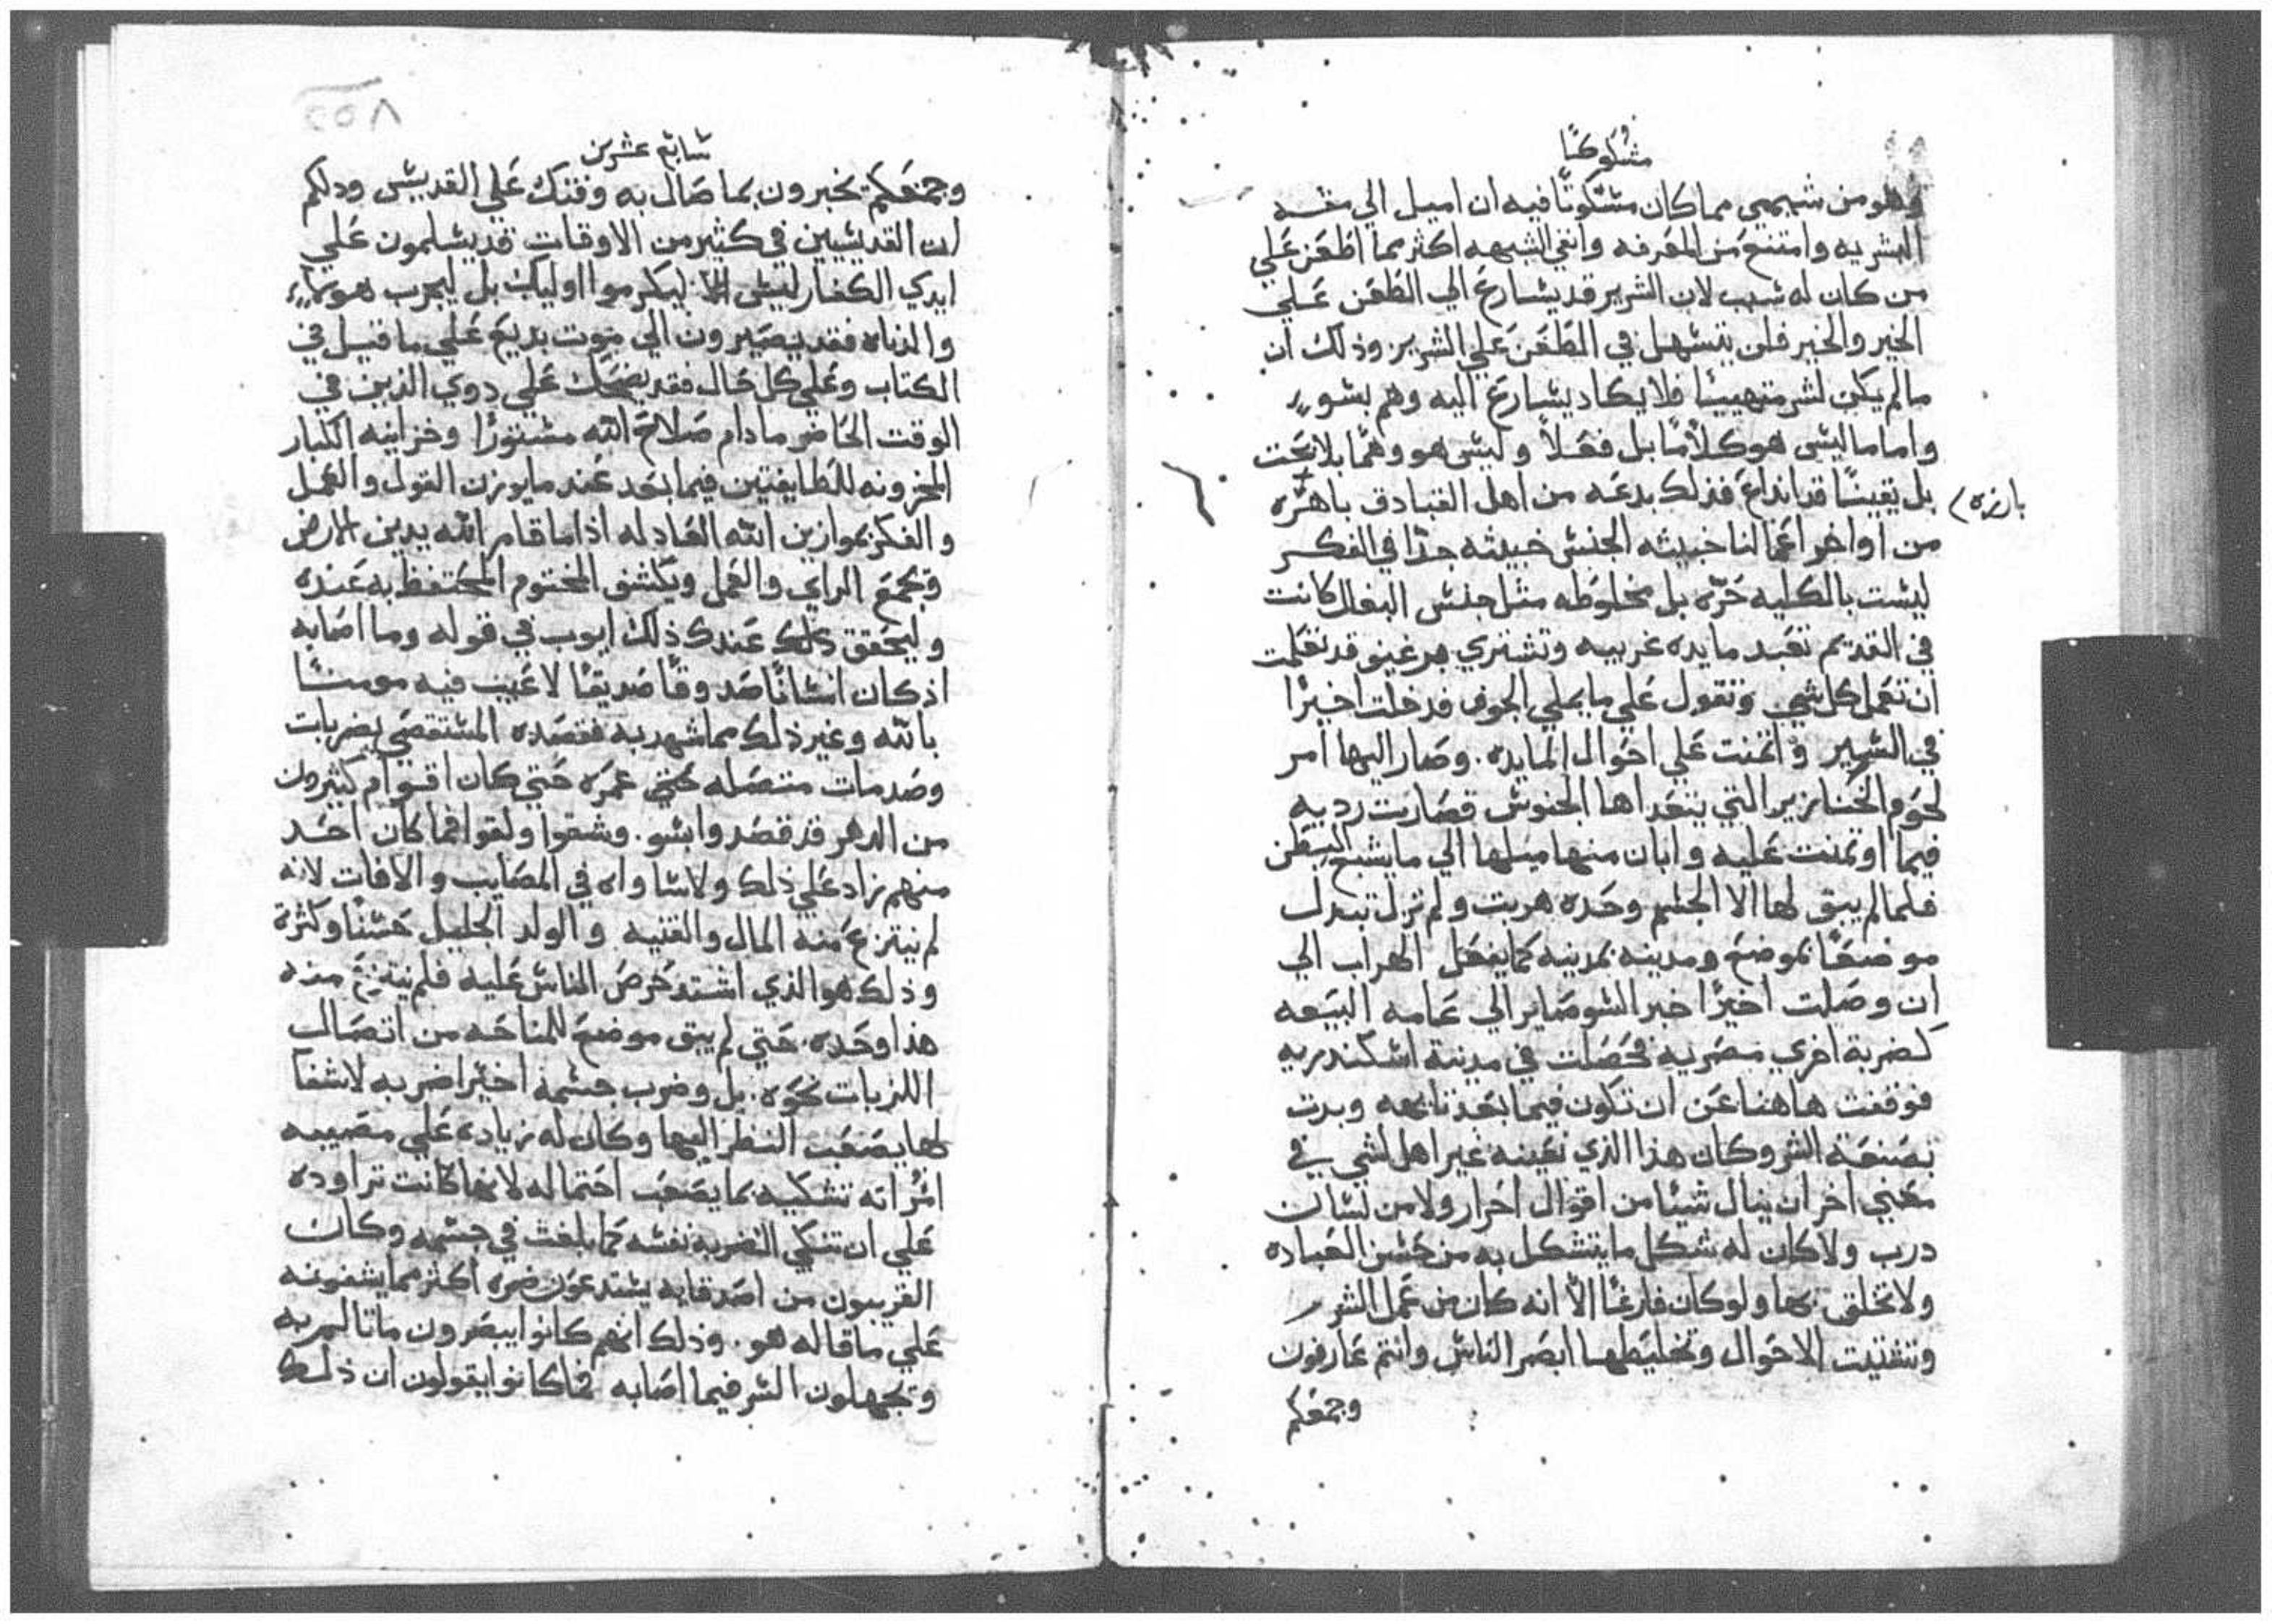 مشكوكًا
وهو من شيمي مما كان مشكوكًا فيه ان اميل الي محبه
البشريه وامتنع من المعرفه وانفي الشبهه اكثر مما اطعن علي
من كان له شبب لان الشرير قد يشارع الي الطعن علي
الخير والخير فلن يتسهل في الطعن علي الشرير وذلك ان
مالم يكن لشر متهييئا فلا يكاد يشارع اليه وهم بشوء
واما ماليس هو كلامًا بل فعلاً وليس هو وهمًا بلا بحث
بل يقينًا قد انداع فذلك بدعه من اهل القبادق باهره
بارزه
من اواخر اعمالنا خبيثه الجنس خبيثه جدًا في الفكر
ليست بالكليه حره بل مخلوطه مثل جنس البغال كانت
في القديم تعبد مايده غريبه وتشتري برغيف قد تعلمت
ان تعمل كل شي وتقول علي ما يملي الجوف فدخلت اخيرًا
في الشهير واتمنت علي احوال المايده وصار اليها امر
لحوم الخنازير التي يتغداها الجنوس فصارت رديه
فيما اوتمنت عليه وابان منها ميلها الي ما يشبع البطن
فلما لم يبق لها الا الجسم وحده هربت ولم تزل تبدل
موضعًا بموضع ومدينه بمدينه كما يفعل الهراب الي
ان وصلت اخيرًا خبر الشو صاير الي عامه البيعه
كضربة اخري مصريه فحصلت في مدينة اشكندريه
فوقفت هاهنا عن ان تكون فيما بعد تايهه وبدت
بصنعة الشر وكان هذا الذي نعينه غير اهل لشي في
معني اخر ان ينال شيئًا من اقوال احرار ولا من لسان
درب ولا كان له شكل ما يتشكل به من حسن العباده
ولا تخلق بها ولو كان فارغًا الا انه كان من عمل الشر
وتشتيت الاحوال وتخليطها ابصر الناس وانتم عارفون
وجمعكم
شابع عشرين
وجمعكم تخبرون بما صال به وفتك علي القديس ودلكم
ان القديسين في كثير من الاوقات قد يسلمون علي
ايدي الكفار ليس ليكرموا اوليك بل ليجرب هوياء
والزناه فقد يصيرون الي موت بديع علي ما قيل في
الكتاب وعلي كل حال فقد يضحك علي دوي الدين في
الوقت الحاضر مادام صلاح الله مشتورًا وخزاينه الكبار
المخزونه للطايفتين فيما بعد عند ما يوزن القول والعمل
والفكر بموازين الله العادله اذا ما قام الله يدين الارض
ويجمع الراي والعمل ويكشف المختوم المحتفظ به عنده
وليحقق ذلك عندك ذلك ايوب في قوله وما اصابه
اذ كان انسانًا صدوقًا صديقًا لا عيب فيه مومنًا
بالله وغير ذلك مما شهد به فقصده المستقصي بضربات
وصدمات متصله حتي كان اقوام كثيرون
من الدهر قد قصدوا بشو وشقوا ولقوا فما كان احد
منهم زاد علي ذلك ولا ساواه في المصايب والافات لانه
لم ينتزع منه المال والقنيه والولد الجليل حسنًا وكثرة
وذلك هو الذي اشتد حرص الناس عليه فلم ينتزع منه
هذا وحده حتي لم يبق موضع للمناحه من اتصال
اللزبات نحوه بل وضرب جسمه اخيرًا ضربه لا شفا
لها يصعب النظر اليها وكان له زياده علي مصيبه
امراته تشكيه بما يصعب احتماله لانها كانت تراوده
علي ان تنكي الضربه نفسه كما بلغت في جسمه وكان
القريبون من اصدقايه يستدعون ضره اكثر مما يشفونه
علي ما قاله هو وذلك انهم كانوا يبصرون ما تالم به
ويجهلون الشر فيما اصابه فما كانوا يقولون ان ذلك